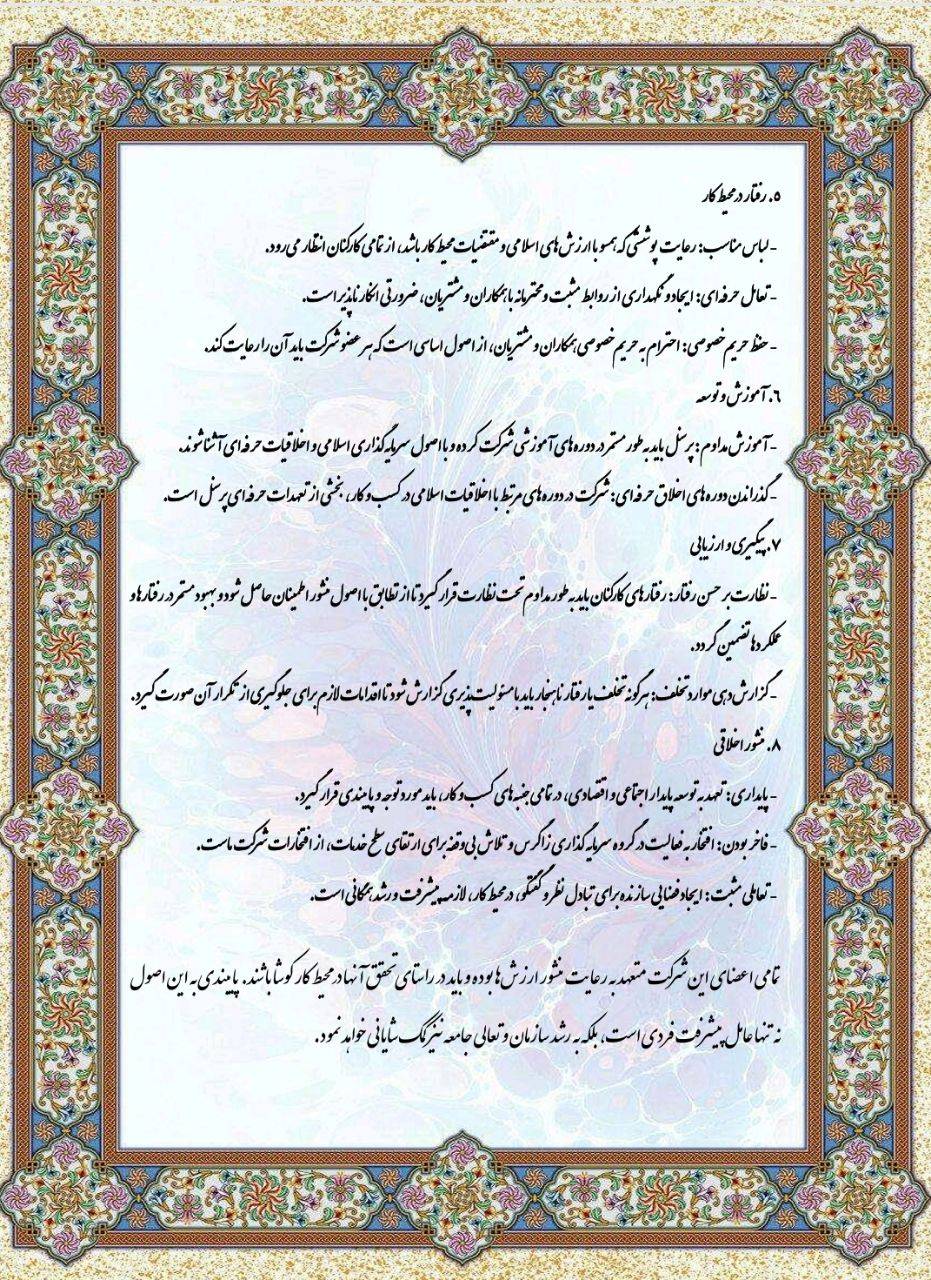 ۵. رفتار در محیط کار
- لباس مناسب: رعایت پوششی که همسو با ارزش‌های اسلامی و مقتضیات محیط کار باشد، از تمامی کارکنان انتظار می‌رود.
- تعامل حرفه‌ای: ایجاد و نگهداری از روابط مثبت و محترمانه با همکاران و مشتریان، ضرورتی انکارناپذیر است.
- حفظ حریم خصوصی: احترام به حریم خصوصی همکاران و مشتریان، از اصول اساسی است که هر عضو شرکت باید آن را رعایت کند.
۶. آموزش و توسعه
- آموزش مداوم: پرسنل باید به طور مستمر در دوره‌های آموزشی شرکت کرده و با اصول سرمایه گذاری اسلامی و اخلاقیات حرفه‌ای آشنا شوند.
- گذراندن دوره‌های اخلاق حرفه‌ای: شرکت در دوره‌های مرتبط با اخلاقیات اسلامی در کسب و کار، بخشی از تعهدات حرفه‌ای پرسنل است.
۷. پیگیری و ارزیابی
- نظارت بر حسن رفتار: رفتارهای کارکنان باید به طور مداوم تحت نظارت قرار گیرد تا از تطابق با اصول منشور اطمینان حاصل شود و بهبود مستمر در رفتارها و
عملکردها تضمین گردد.
- گزارش دهی موارد تخلف: هرگونه تخلف یا رفتار ناهنجار باید با مسئولیت‌پذیری گزارش شود تا اقدامات لازم برای جلوگیری از تکرار آن صورت گیرد.
۸. منشور اخلاقی
- پایداری: تعهد به توسعه پایدار اجتماعی و اقتصادی، در تمامی جنبه‌های کسب و کار، باید مورد توجه و پایبندی قرار گیرد.
- فاخر بودن: افتخار به فعالیت در گروه سرمایه گذاری زاگرس و تلاش بی‌وقفه برای ارتقای سطح خدمات، از افتخارات شرکت ماست.
- تعاملی مثبت: ایجاد فضایی سازنده برای تبادل نظر و گفتگو، در محیط کار، لازمه پیشرفت و رشد همگانی است.
تمامی اعضای این شرکت متعهد به رعایت منشور ارزش‌ها بوده و باید در راستای تحقق آنها در محیط کار کوشا باشند. پایبندی به این اصول
نه تنها عامل پیشرفت فردی است، بلکه به رشد سازمان و تعالی جامعه نیز کمک شایانی خواهد نمود.